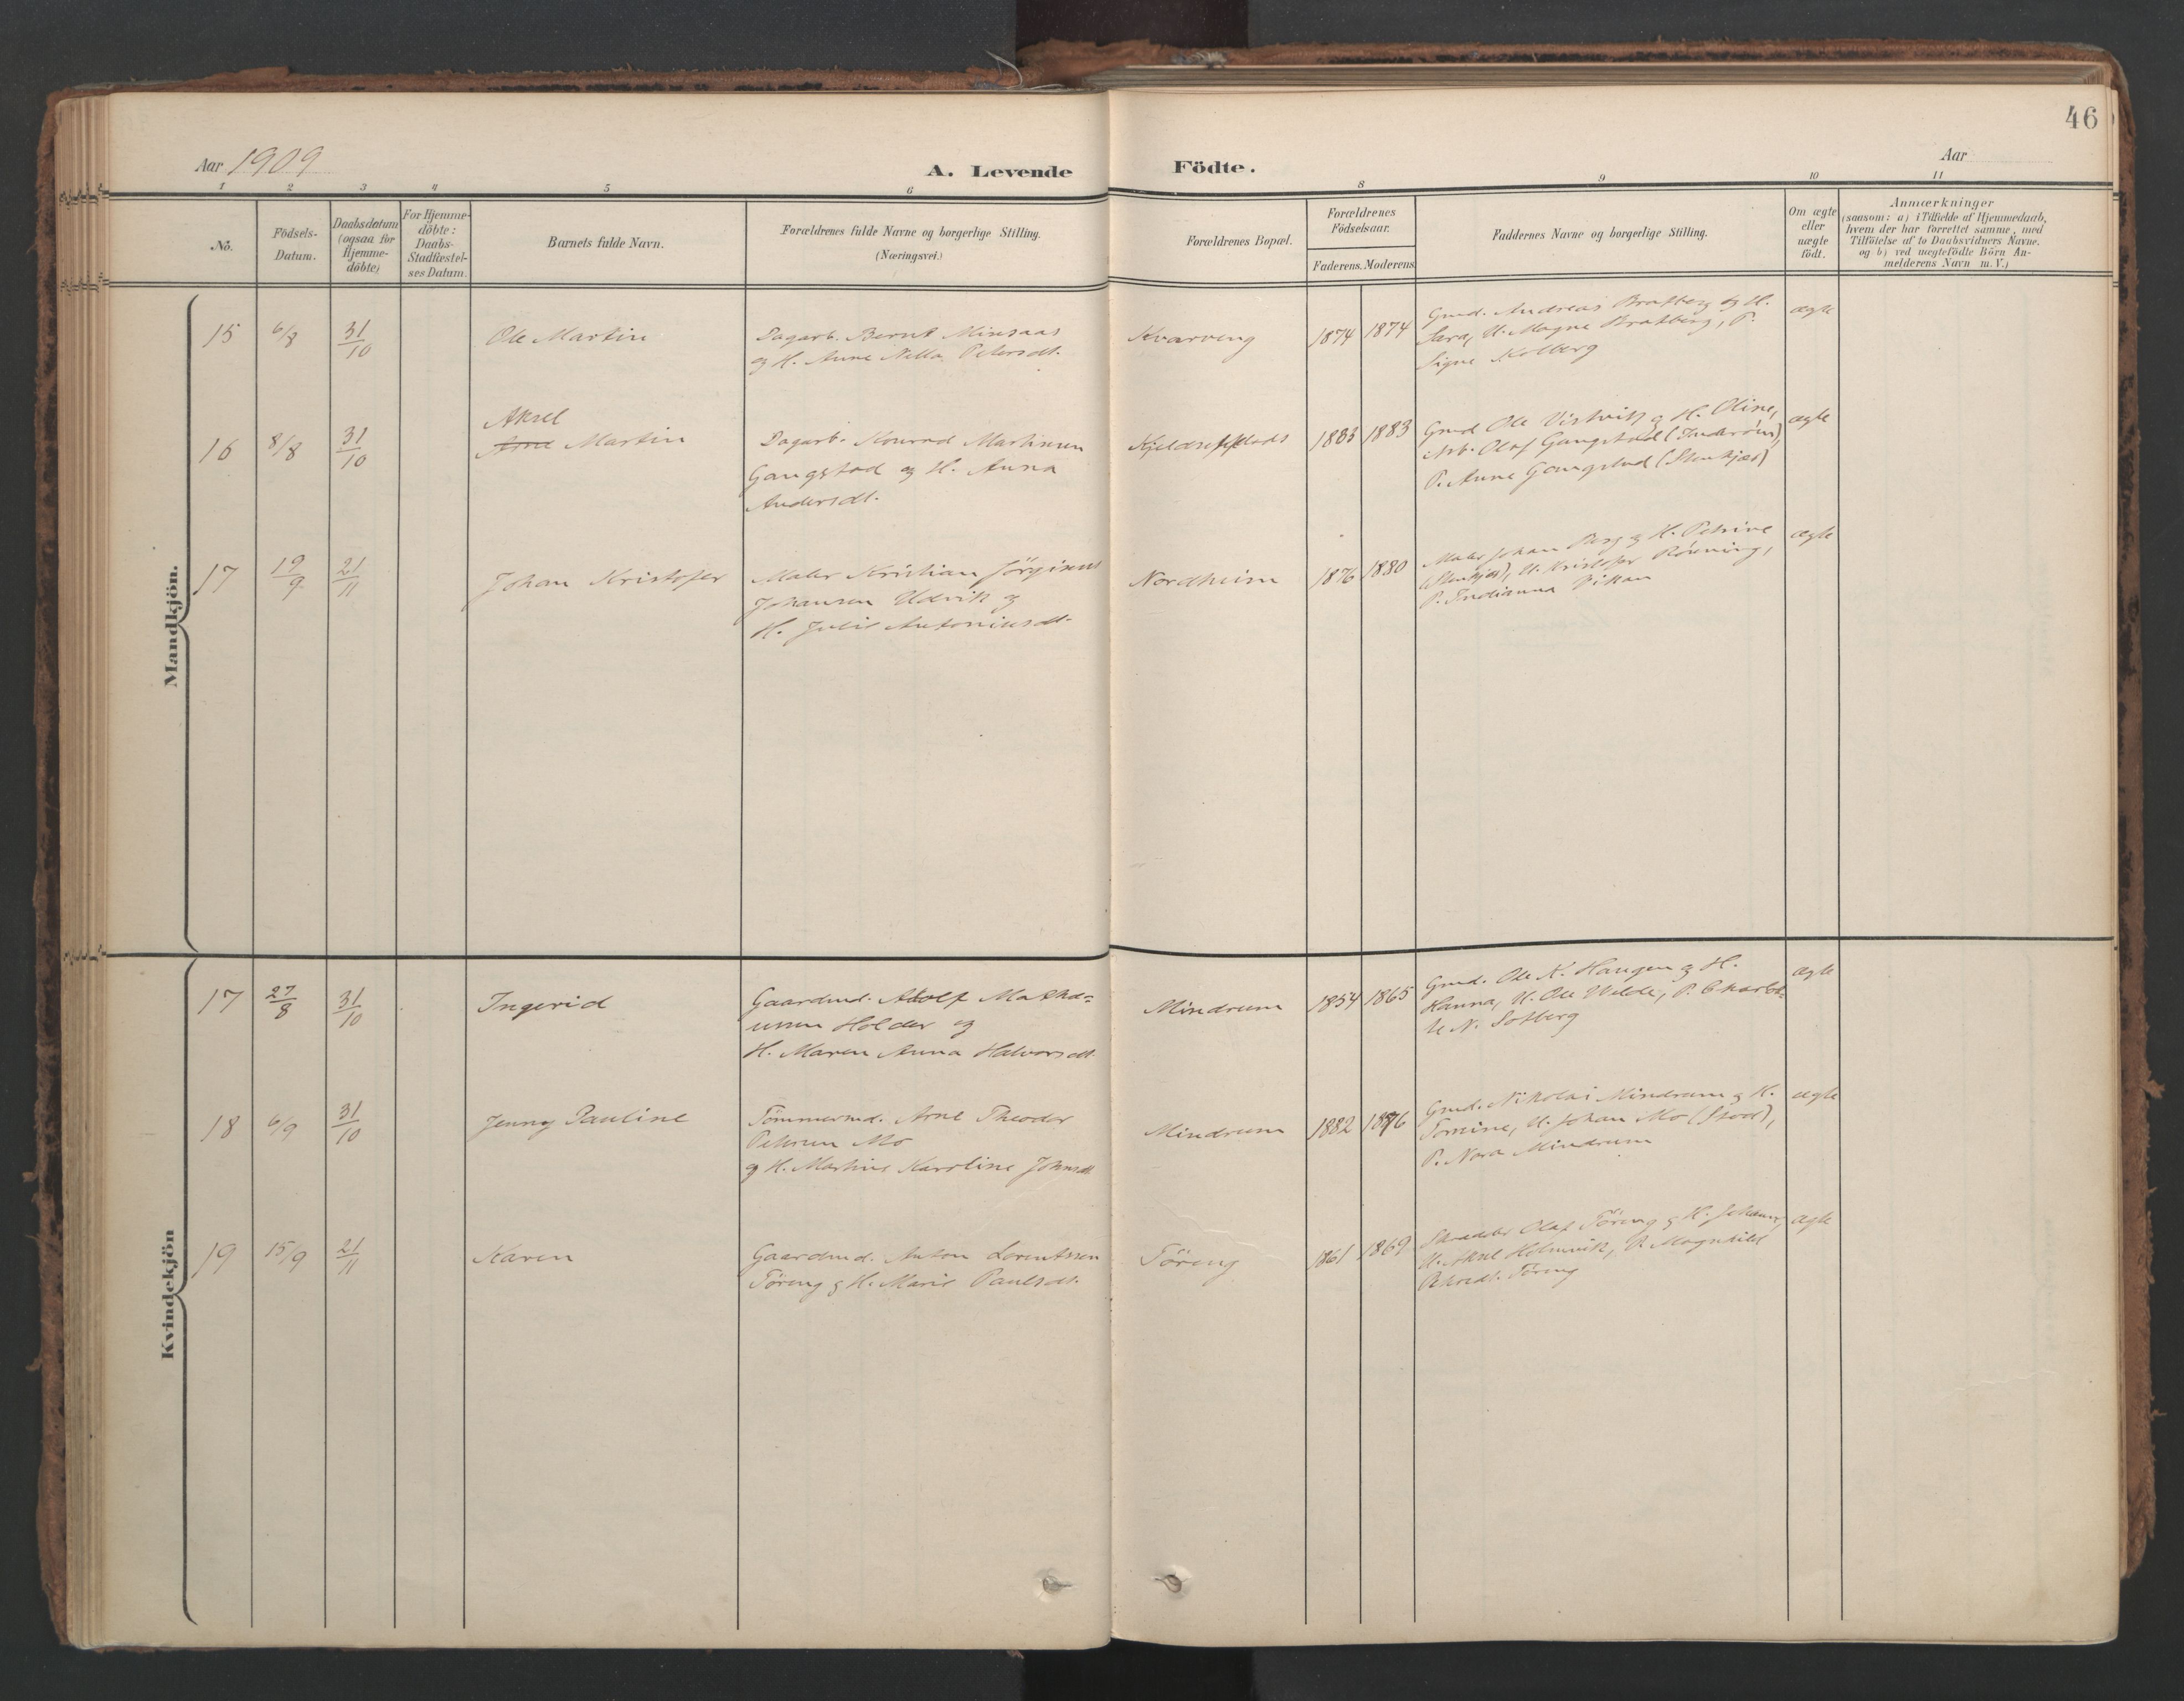 46
Aar 1909
A. Levende Födte.
Aar
1 2 3 4 5 6 8 9 10 11
No.
Födsels-
Datum.
Daabsdatum
(ogsaa for
Hjemme-
döbte)
For Hjemme-
döbte:
Daabs-
Stadfæstel-
ses Datum.
Barnets fulde Navn.
Forældrenes fulde Navne og borgerlige Stilling.
(Næringsvei.)
Forældrenes Bopæl.
Forældrenes
Födselsaar.
Faderens. Moderens
Faddernes Navne og borgerlige Stilling.
Om ægte
eller
uægte
födt.
Anmærkninger
(saasom: a) i Tilfælde af Hjemmedaab,
hvem der har forrettet samme, med
Tilföielse af to Daabsvidners Navne.
og b) ved uægtefödte Börn An-
melderens Navn m. V.)
Mandkjön.
15 6/8 31/10 Ole Martin
Dagarb. Bernt Minsaas
og H. Anne Nella Petersdt.
Kvarveng 1874 1874
Gmd. Andreas Bratberg og H.
Sara, U. Magne Bratberg, P.
Signe Kolberg
ægte
16 8/8 31/10
Aksel
Arne Martin
Dagarb. Konrad Martinsen
Gangstad og H. Anna
Andersdt.
1883 1883
Gmd Ole Vistvik og H. Oline,
Arb. Olaf Gangstad (Inderøen),
P. Anna Gangstad (Stenkjær)
ægte
17 19/9 21/11 Johan Kristofer
Maler Kristian Jörginus
Johansen Udvik og
H. Julie Antoniusdt.
Nordheim 1876 1880
Maler Johan Berg og H. Petrine
(Stenkjær), U. Kristofer Rönning,
P. Indianna
ægte
Kvindekjön
17 27/8 31/10 Ingerid
Gaardmd. Adolf Mathæ=
ussen Holder og
H. Maren Anna Halvorsdt.
Mindrum 1854 1865
Gmd. Ole K. Haugen og H.
Hanna, U. Ole Welde, P. Charlot-
te N. Solberg
ægte
18 6/9 31/10 Jenny Pauline
Tömmermd. Arne Theodor
Petersen Mo
og H. Martine Karoline Johnsdt.
Mindrum 1882 1876
Gmd. Nikolai Mindrum og H.
Tomine, U. Johan Mo (Stod),
P. Nora Mindrum
ægte
19 15/9 21/11 Karen
Gaardmd. Anton Lorentssen
Töring og H. Marie Paulsdt.
Töring 1861 1869
Skrædder Olaf Töring og H. Johanna,
U. Aksel Holmvik, P. Magnhild
Petersdt. Töring
ægte